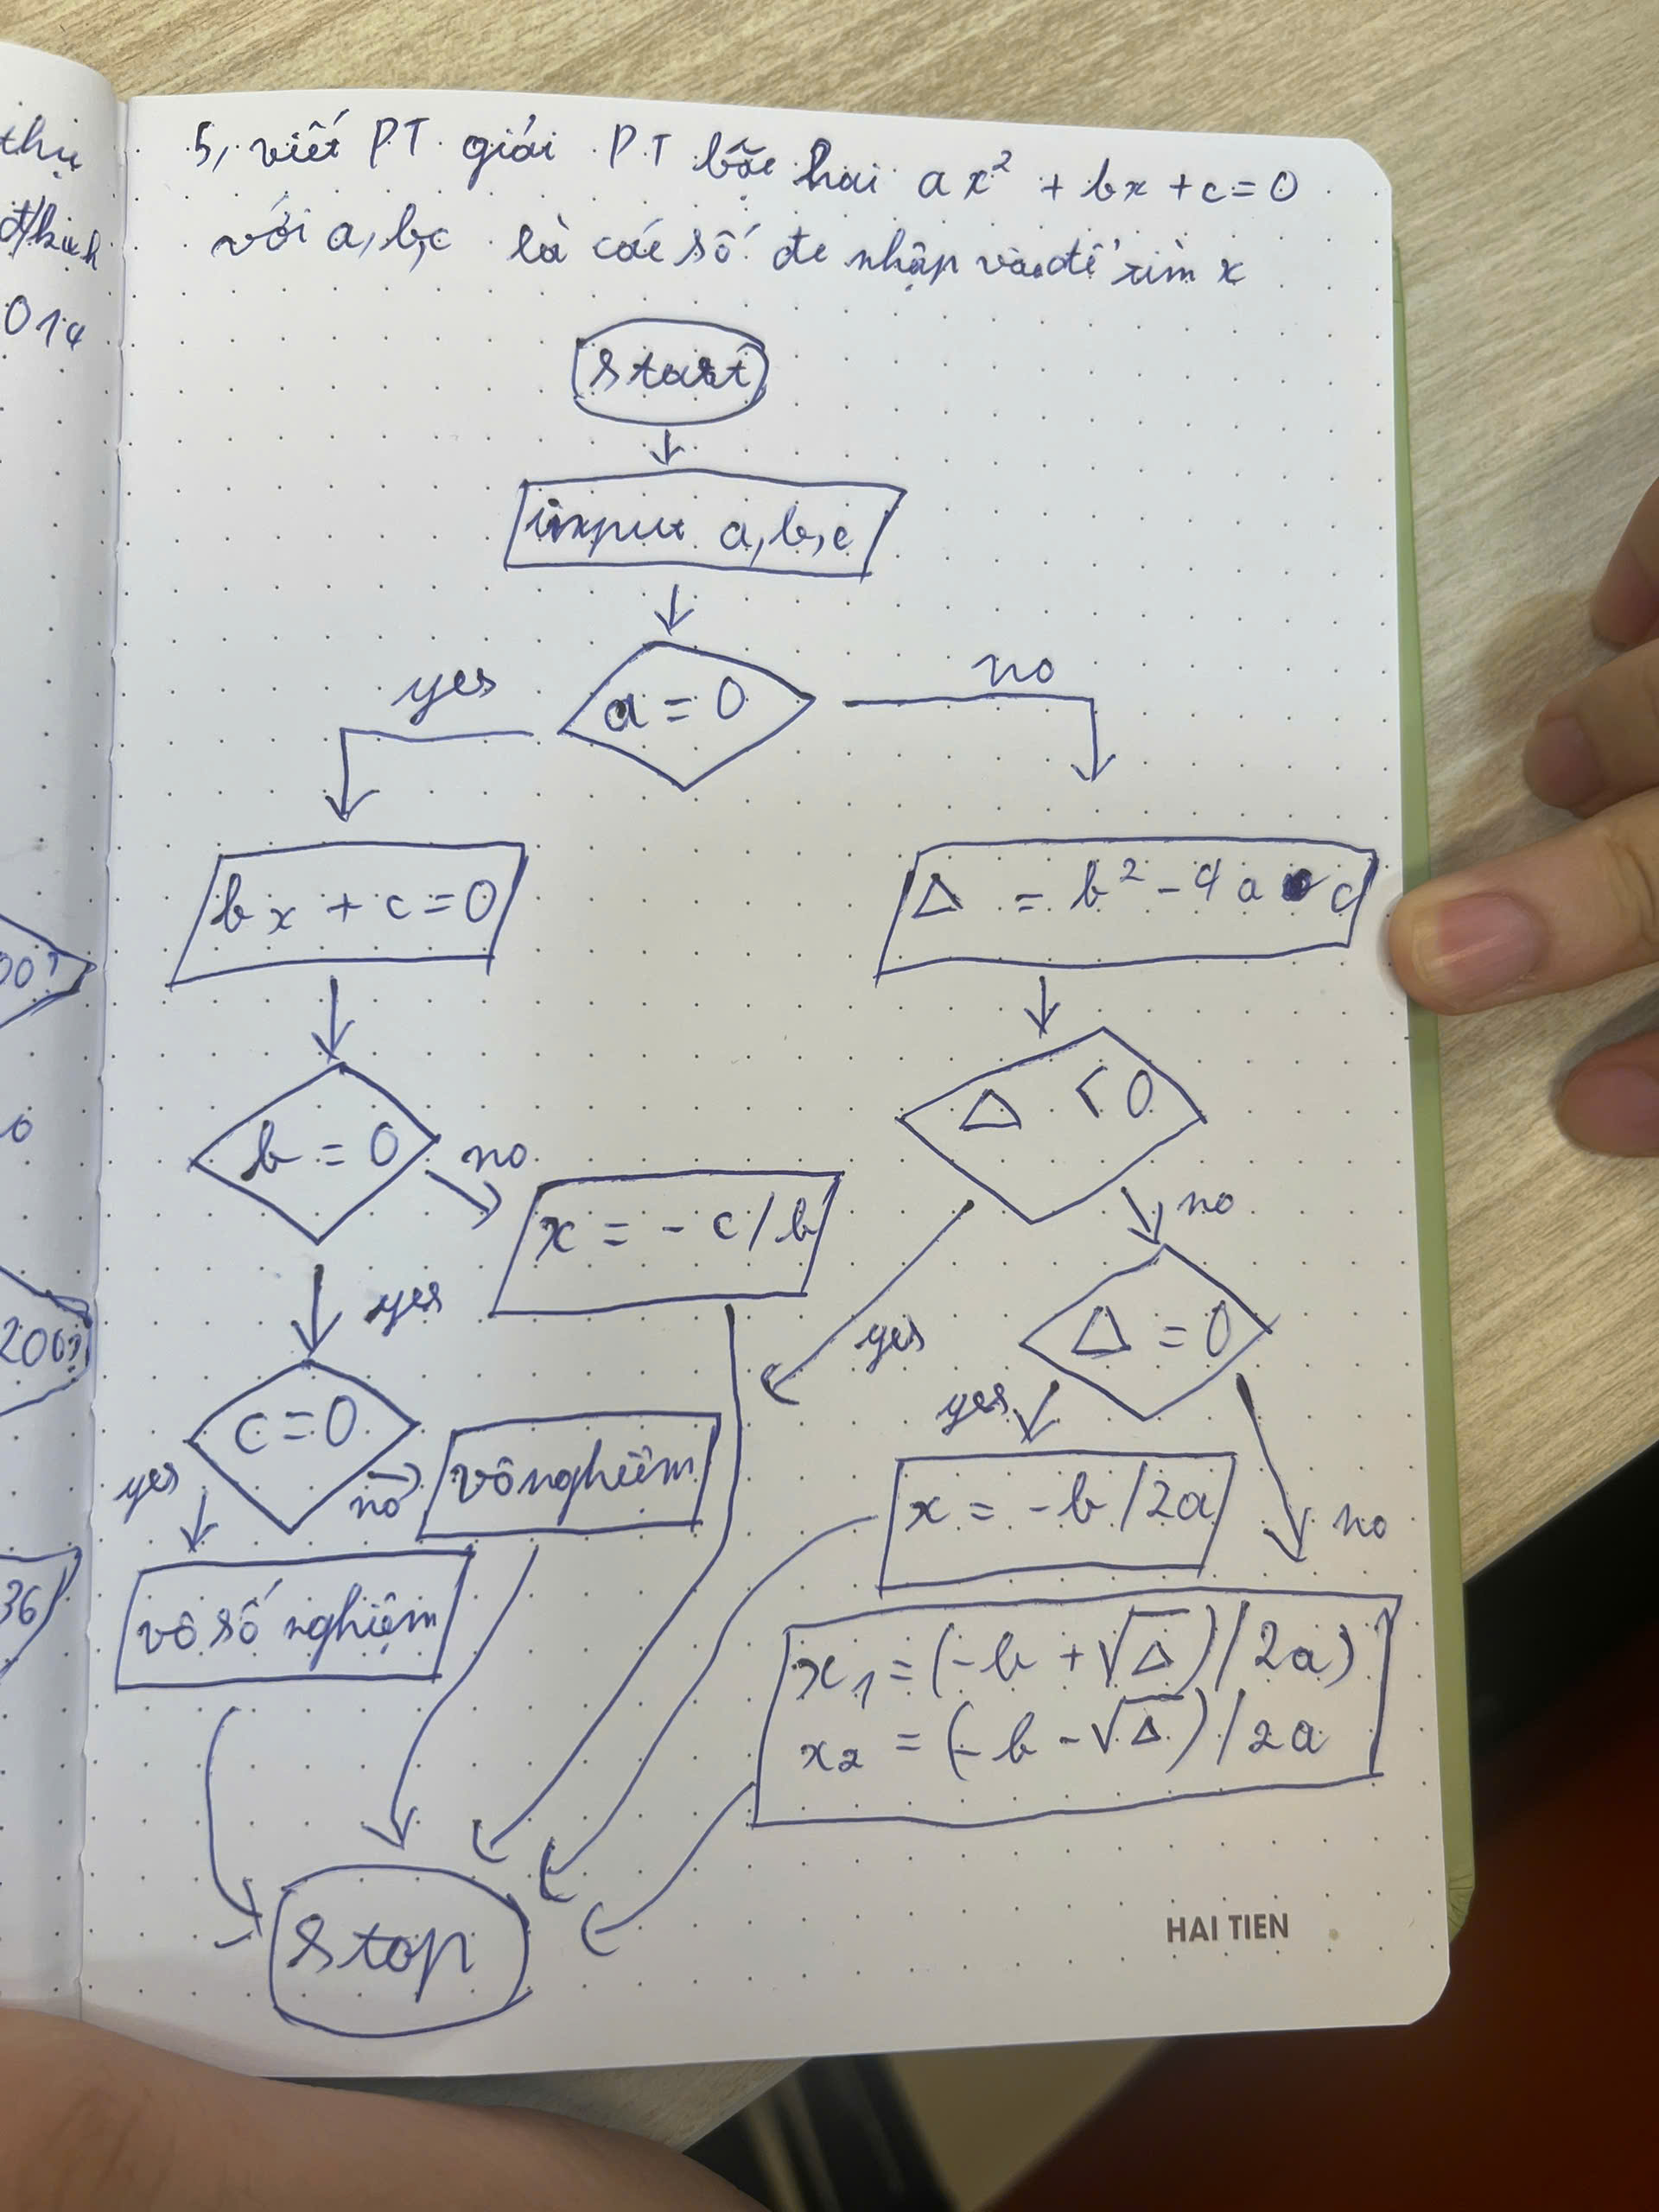 thụ
đ/kwh
014
00?
200?
36
5, viết PT giải PT bậc hai ax² + bx + c = 0
với a, b, c là các số đc nhập vào để tìm x
start
input a, b, c
a = 0
yes
no
bx + c = 0
Δ = b² - 4a c
b = 0
no
Δ < 0
x = - c / b
no
yes
yes
Δ = 0
c = 0
yes
yes
no
vô nghiệm
x = - b / 2a
no
vô số nghiệm
x1 = (- b + √Δ) / 2a)
x2 = (- b - √Δ) / 2a
stop
HAI TIEN